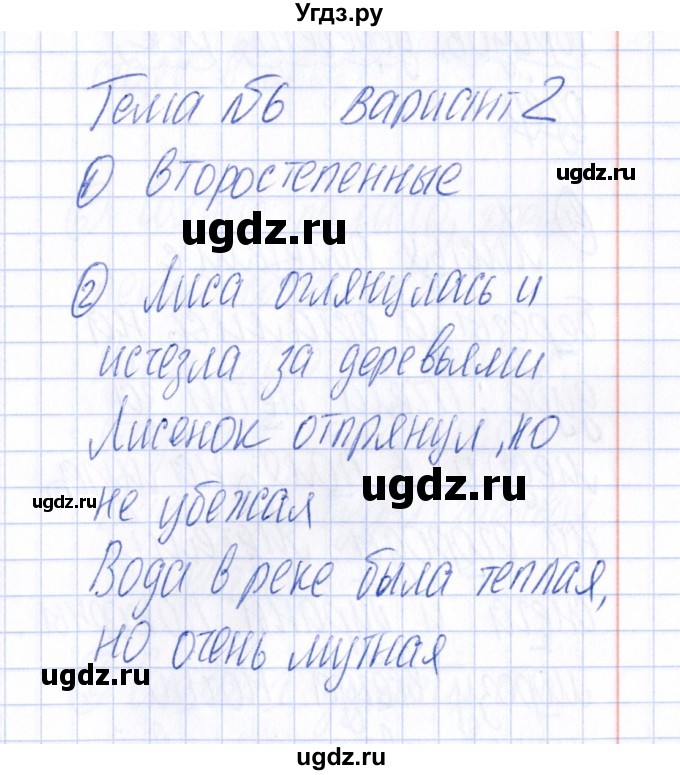 Угдз.ру
Тема №6 вариант 2
① второстепенные
ugdz.ru
ugdz.ru
② Лиса оглянулась и
исчезла за деревьями
Лисенок отпрянул, но
ugdz.ru
ugdz.ru
не убежал
Вода в реке была теплая,
но очень мутная
ugdz.ru
ugdz.ru